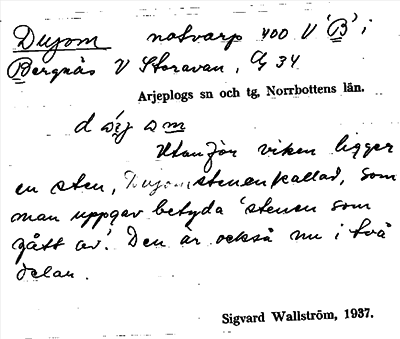 Dujom notvarp 400 V 'B' i
Bergnäs V Storavan, G 34
Arjeplogs sn och tg, Norrbottens län.
Utanför viken ligger
en sten, Dujomstenen kallad, som
man uppgav betyda 'stenen som
gått av'. Den är också nu i två
delar.
Sigvard Wallström, 1937.